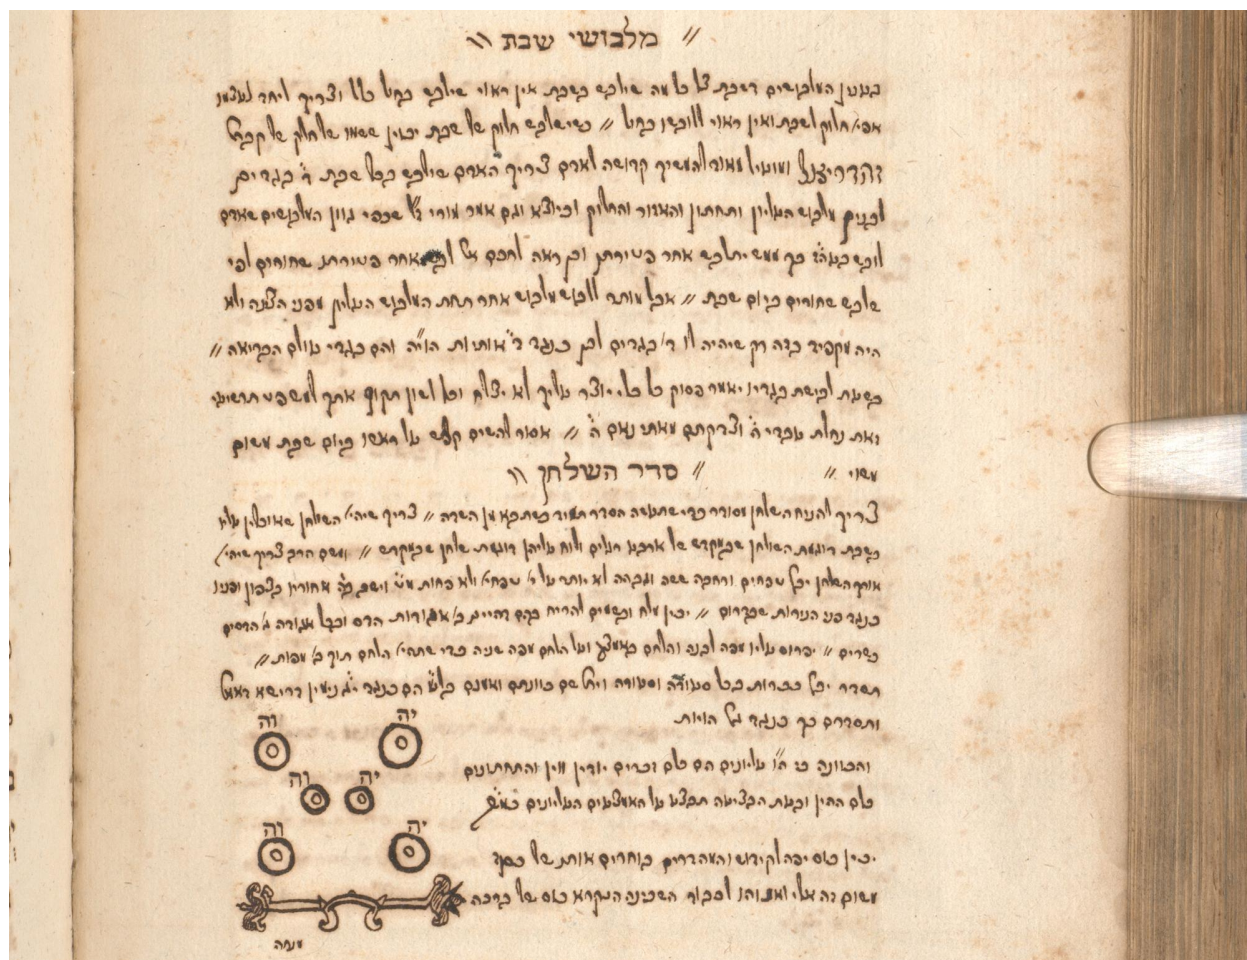 // מלבושי שבת //
בענין המלבושים דשבת כל מה שילבש בשבת אין ראוי שילבש בחול כלל וצריך ליחד לעצמו
אפי׳ חלוק לשבת ואין ראוי ללובשו בחול // כשישלבש חלוק של שבת יכוין ששמו של חלק של קבר
ומועיל מאוד להמשיך קדושה לאדם צריך האדם שילבש בכל שבת ד׳ בגדים
לבנים מלבוש העליון ותחתון והאזור והחלוק וכיוצא וגם אמר מורי ז״ל שכפי גוון המלבושים שאדם
לובש בעה״ז כך ממש יתלבש אחר פטירתו וכן ראה לחכם א׳ אחר פטירתו שחורים לפי
שלבש שחורים ביום שבת // אבל מותר ללבוש מלבוש אחר תחת המלבוש העליון מפני הצנה ולא
היה מקפיד בזה רק שיהיה לו ד׳ בגדים לבן כנגד ד׳ אותיות הוי״ה והם בגדי עולם הבריאה //
בשעת לבישת בגדיו יאמר פסוק כל כלי יוצר עליך לא יצלח וכל לשון תקום אתך למשפט תרשיעי
זאת נחלת עבדי ה׳ וצדקתם מאתי נאם ה׳ // אסור להשים על ראשו ביום שבת משום
עשוי //
// סדר השלחן //
צריך להניח השלחן מסודר כדי שתעשה הסדר תמיד כשתבא מן השדה // צריך שיהי׳ השולחן שאוכלין עליו
בשבת דוגמת השולחן שבמקדש של ארבע רגלים ולוח עליהן דוגמת שלחן שבמקדש // ומשם הרב צריך שיהי׳
אורך השלחן י״ב טפחים ורחבה ששה וגבהה לא יותר על י׳ טפחי׳ ולא פחות וישב אחוריו בצפון ופניו
כנגד פני הנירות שבדרום // יכוין מלח ובשמים להריח בהם דהיינו ב׳ אגודות הדס ובכל אגודה ג׳ הדסים
כשרים // יפרוס עליו מפה לבנה והלחם באמצע ועל הלחם מפה שניה כדי שתהי׳ הלחם תוך ב׳ מפות //
תסדר י״ב ככרות בכל סעודה וסעודה הם כנגד י״ג תיקונין דרישא דאריך
ותסדרם כך כנגד ג׳ הויות
והכוונה כי ה״ו עליונים הם כלם זכרים יודין ווין והתחתונים
כלם ההין ובעת הבציעה תבצע על האמצעים העליונים
יכוין כוס יפה לקידוש והמהדרים בוחרים אותו של כסף
משום זה אלי ואנוהו לכבוד השכינה הנקרא כוס של ברכה
יה וה
יה וה
יה וה